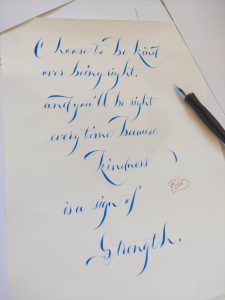 Choose to be kind
over being right,
and you'll be right
every time because
kindness
is a sign of
Strength.